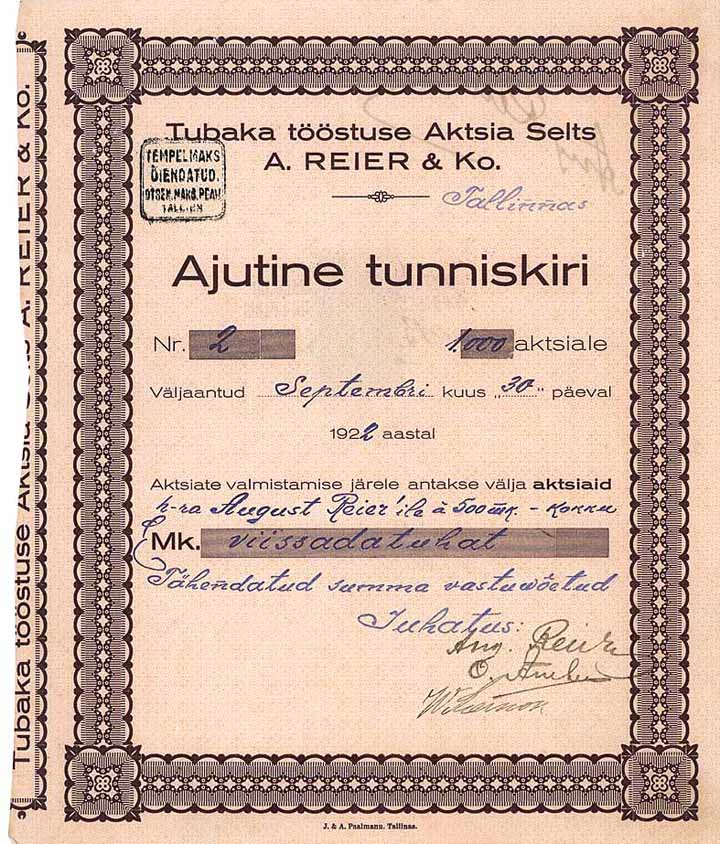 Tubaka tööstuse Aktsia Selts
A. REIER & Ko.
TEMPELMAKS
ÕIENDATUD.
OTSEK. MAKS. PEAV.
TALLINN
Tallinnas
Ajutine tunniskiri
Nr. 2 1.000 aktsiale
Väljaantud Septembri kuus „30“ päeval
1922 aastal
Aktsiate valmistamise järele antakse välja aktsiaid
h-ra August Reier'ile à 500 mk. - kokku
EMk. viissadatuhat
Tähendatud summa vastuwõetud
Juhatus:
Aug. Reier
J. & A. Paalmann. Tallinas.
Tubaka tööstuse Aktsia Selts A. REIER & Ko.